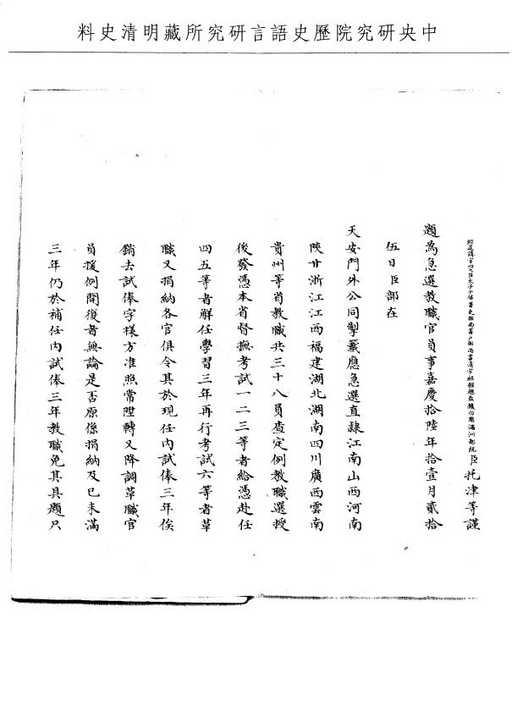 中央研究院歷史語言研究所藏明清史料
臣托津等謹
題為急選教職官員事嘉慶拾陸年拾壹月貳拾
伍日臣部在
天安門外公同掣籤應急選直隸江南山西河南
陝甘浙江江西福建湖北湖南四川廣西雲南
貴州等省教職共三十八員查定例教職選授
後發憑本省督撫考試一二三等者給憑赴任
四五等者解任學習三年再行考試六等者革
職又捐納各官俱令其於現任內試俸三年俟
銷去試俸字樣方准照常陞轉又降調革職官
員援例開復者無論是否原係捐納及已未滿
三年仍於補任內試俸三年教職免其具題只